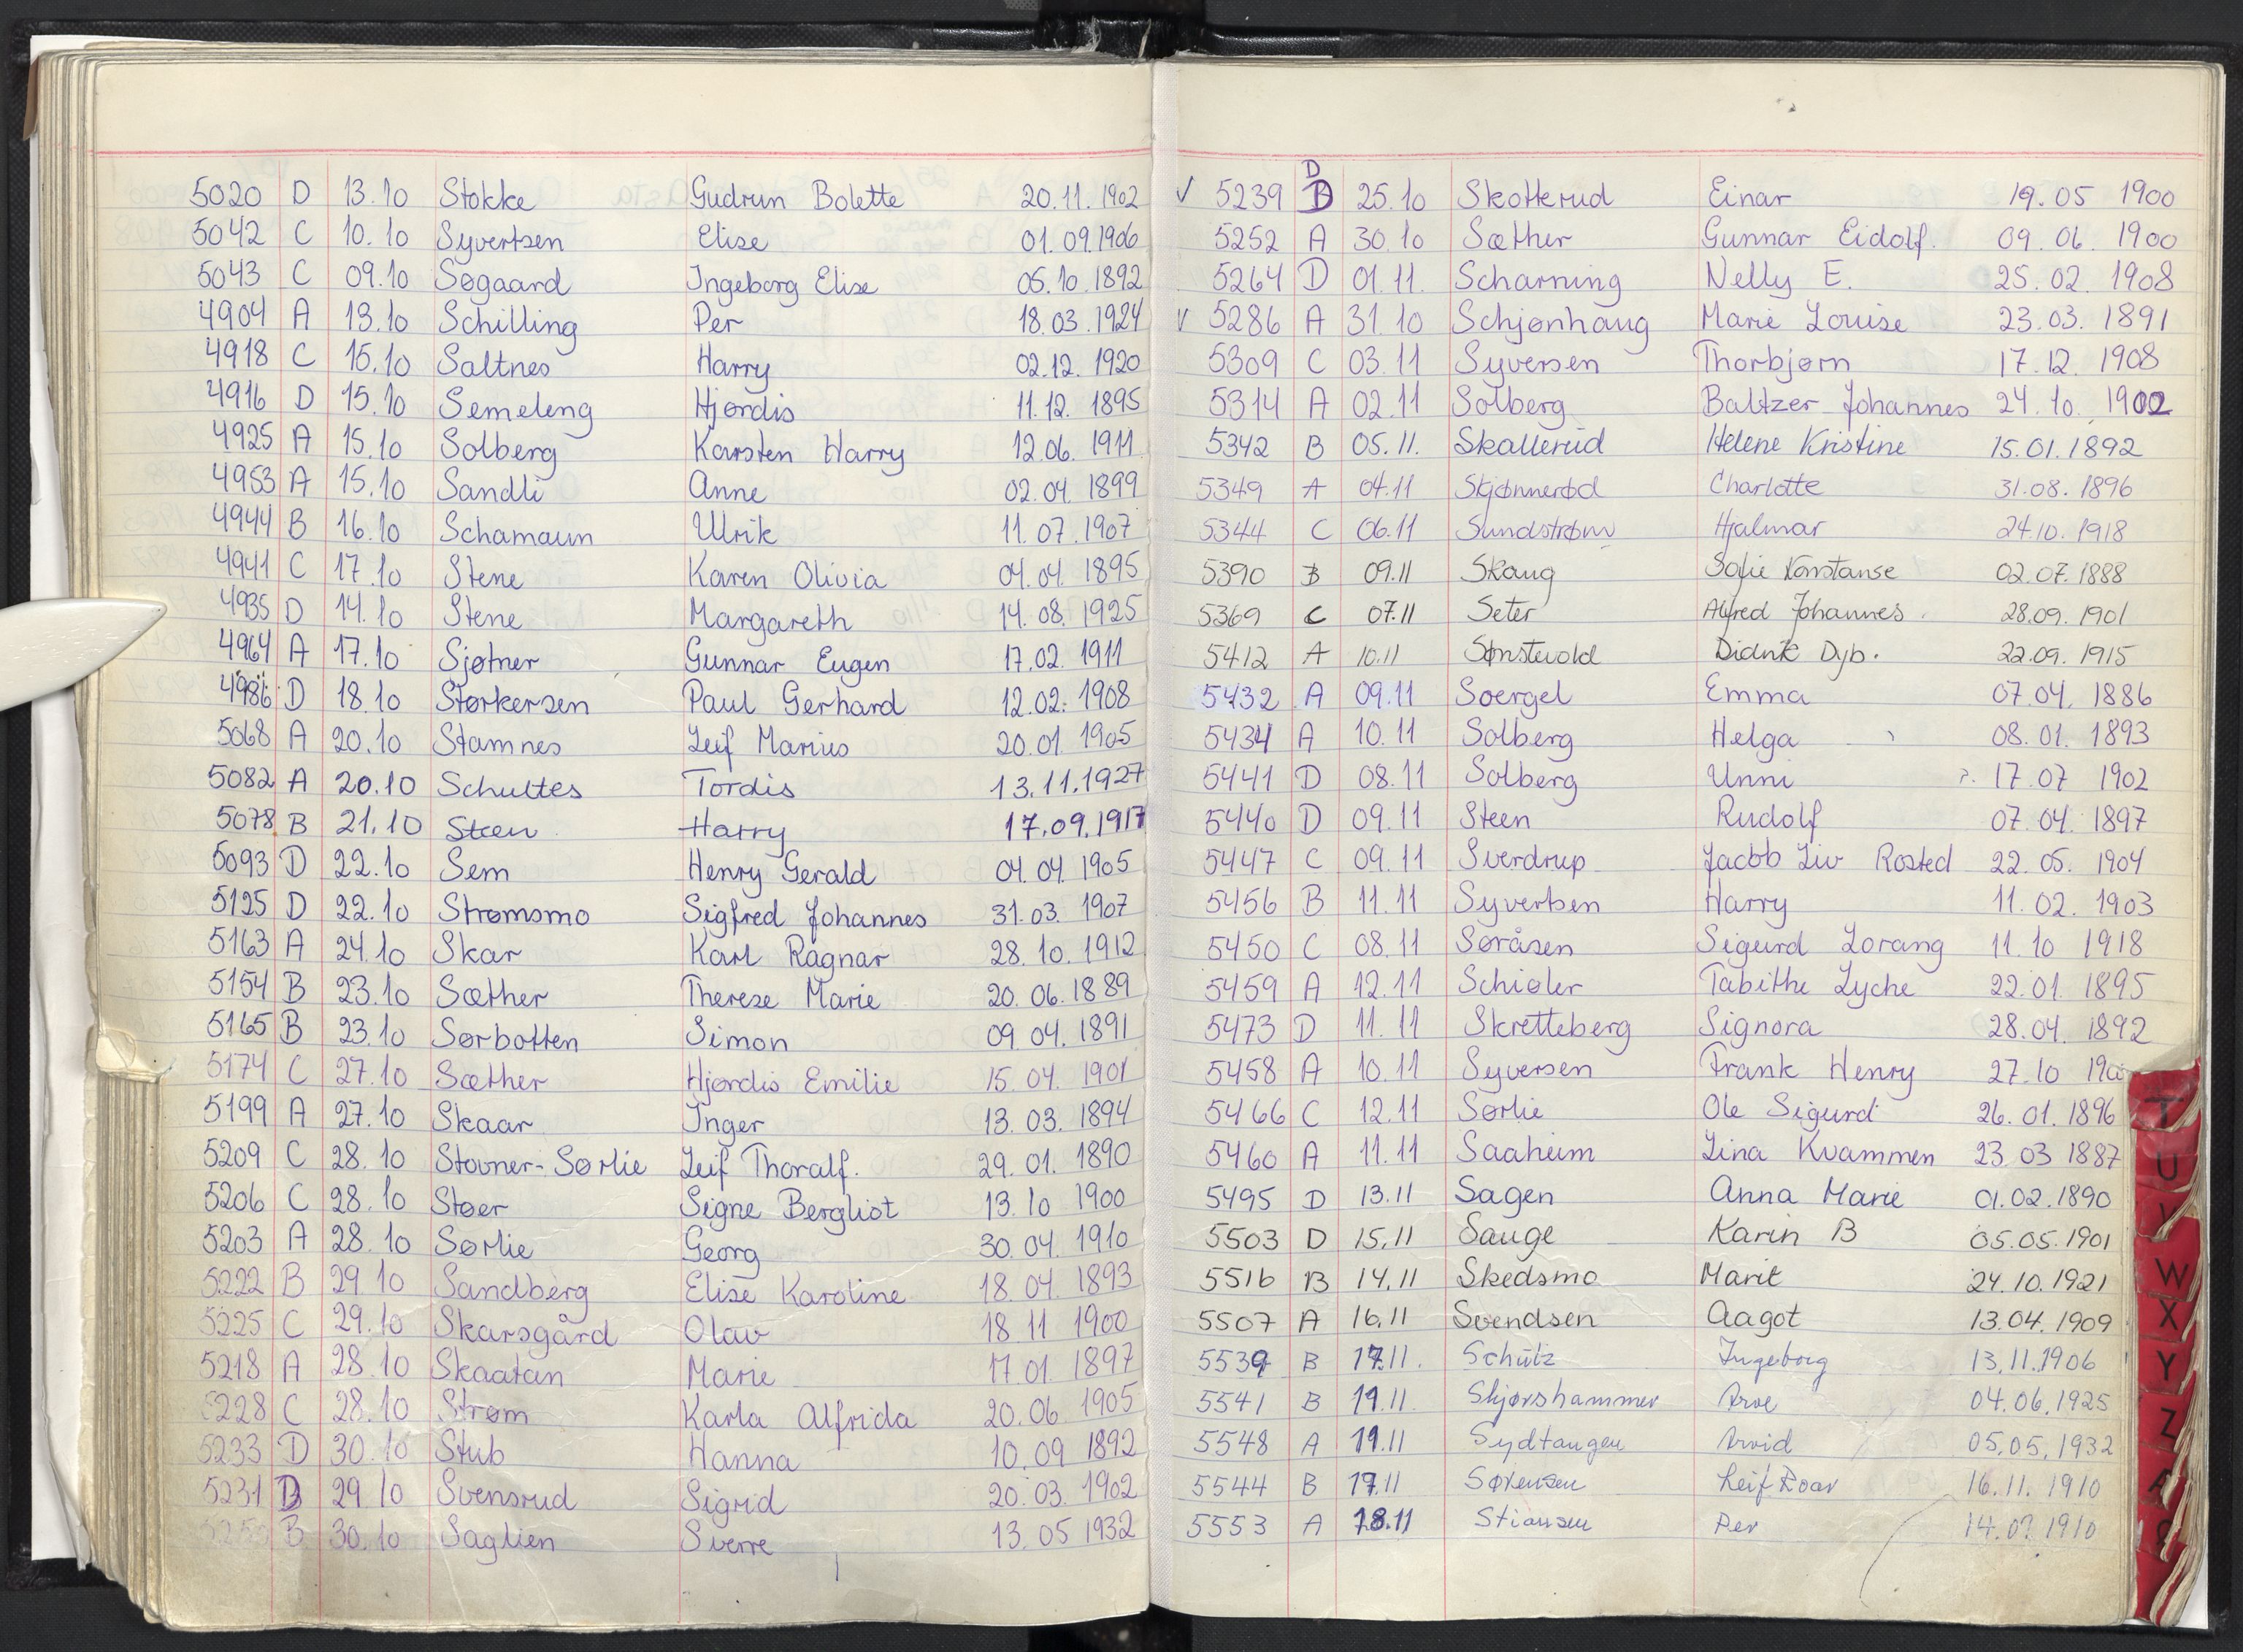 5020 D 13.10 Stokke Gudrun Bolette 20.11.1902
5042 C 10.10 Syvertsen Elise 01.09.1906
5043 C 09.10 Søgaard Ingeborg Elise 05.10.1892
4904 A 13.10 Schilling Per 18.03.1924
4918 C 15.10 Saltnes Harry 02.12.1920
4916 D 15.10 Semeleng Hjørdis 11.12.1895
4925 A 15.10 Solberg Karsten Harry 12.06.1911
4953 A 15.10 Sandli Anne 02.04.1899
4944 B 16.10 Schamaun Ulrik 11.07.1907
4941 C 17.10 Stene Karen Olivia 04.04.1895
4935 D 14.10 Stene Margareth 14.08.1925
4964 A 17.10 Sjøtner Gunnar Eugen 17.02.1911
4986 D 18.10 Størkersen Paul Gerhard 12.02.1908
5068 A 20.10 Stamnes Leif Marius 20.01.1905
5082 A 20.10 Schultes Tordis 13.11.1927
5078 B 21.10 Steen Harry 17.09.1917
5093 D 22.10 Sem Henry Gerald 04.04.1905
5125 D 22.10 Strømsmo Sigfred Johannes 31.03.1907
5163 A 24.10 Skar Karl Ragnar 28.10.1912
5154 B 23.10 Sæther Therese Marie 20.06.1889
5165 B 23.10 Sørbotten Simon 09.04.1891
5174 C 27.10 Sæther Hjørdis Emilie 15.04.1901
5199 A 27.10 Skaar Inger 13.03.1894
5209 C 28.10 Stovner-Sørlie Leif Thoralf. 29.01.1890
5206 C 28.10 Støer Signe Bergliot 13.10 1900
5203 A 28.10 Sørlie Georg 30.04.1910
5222 B 29.10 Sandberg Elise Karoline 18.04.1893
5225 C 29.10 Skarsgård Olav 18 11 1900
5218 A 28.10 Skaatan Marie 17.01.1897
5228 C 28.10 Strøm Karla Alfrida 20.06.1905
5233 D 30.10 Stub Hanna 10.09 1892
5231 D 29.10 Svensrud Sigrid 20.03.1902
B 30.10 Saglien Sverre 13.05 1932
D
√ 5239 D 25.10 Skotterud Einar 19.05 1900
5252 A 30.10 Sæther Gunnar Eidolf. 09.06.1900
5264 D 01.11. Scharning Nelly E. 25.02.1908
√ 5286 A 31.10 Schjønhaug Marie Louise 23.03.1891
5309 C 03.11 Syversen Thorbjørn 17.12.1908
5314 A 02.11 Solberg Baltzer Johannes 24.10.1902
5342 B 05.11. Skallerud Helene Kristine 15.01.1892
5349 A 04.11 Skjønnerød Charlotte 31.08.1896
5344 C 06.11 Sundstrøm Hjalmar 24.10.1918
5390 B 09.11 Skaug Sofie Konstanse 02.07.1888
5369 C 07.11 Seter Alfred Johannes. 28.09.1901
5412 A 10.11 Sønstevold Didrik Dyb. 22.09.1915
5432 A 09.11 Soergel Emma 07.04.1886
5434 A 10.11 Solberg Helga 08.01.1893
5441 D 08.11 Solberg Unni 17.07 1902
5440 D 09.11 Steen Rudolf 07.04.1897
5447 C 09.11 Sverdrup Jacob Liv Rosted 22.05.1904
5456 B 11.11 Syvertsen Harry 11.02.1903
5450 C 08.11 Søråsen Sigurd Lorang 11.10 1918
5459 A 12.11 Schiøler Tabithe Lyche 22.01.1895
5473 D 11.11 Skretteberg Signora 28.04.1892
5458 A 10.11 Syversen Frank Henry 27.10
5466 C 12.11 Sørlie Ole Sigurd 26.01.1896
5460 A 11.11 Saaheim Lina Kvammen 23.03 1887
5495 D 13.11 Sagen Anna Marie 01.02.1890
5503 D 15.11 Sauge Karin B 05.05.1901
5516 B 14.11 Skedsmo Marit 24.10.1921
5507 A 16.11 Svendsen Aagot 13.04.1909
5539 B 17.11. Schütz Ingeborg 13.11.1906
5541 B 19.11. Skjørshammer Arve 04.06.1925
5548 A 19.11 Sydtangen Arvid 05.05.1932
5544 B 17.11 Sørensen Leif Roar 16.11.1910
5553 A 18.11 Stiansen Per 1910
T
U
V
W
X
Y
Z